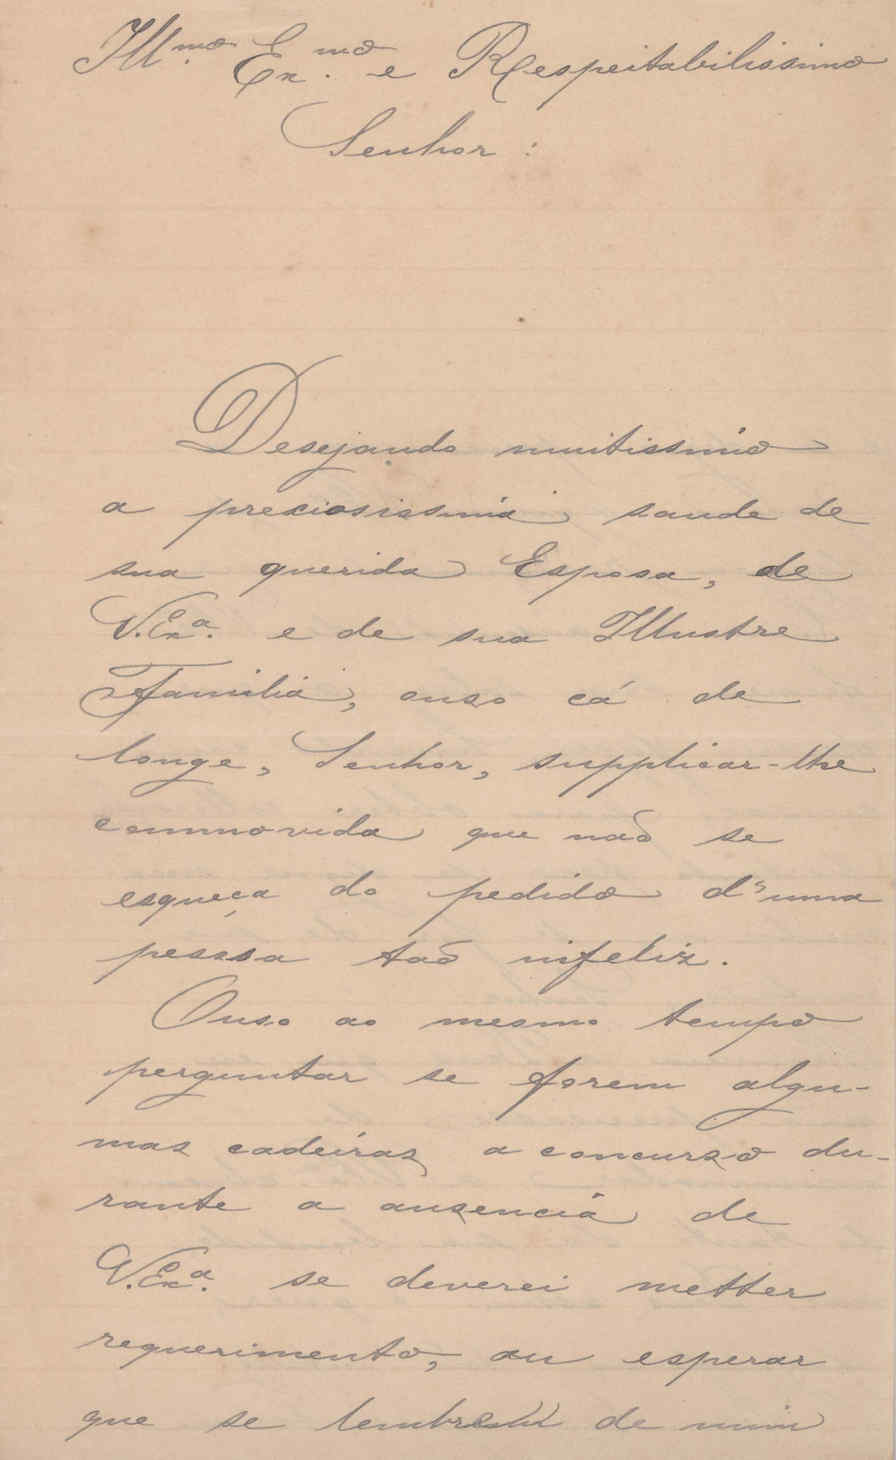 Ill.mo Ex.mo e Respeitabilissimo
Senhor:
Desejando muitissimo
a preciosissima saude de
sua querida Esposa, de
V. Ex.a e de sua Illustre
Familia, ouso cá de
longe, Senhor, supplicar-lhe
commovida que não se
esqueça do pedido d'uma
pessoa tão infeliz.
Ouso ao mesmo tempo
perguntar se forem algu-
mas cadeiras a concurso du-
rante a ausencia de
V. Ex.a se deverei metter
requerimento, ou esperar
que se lembrem de mim